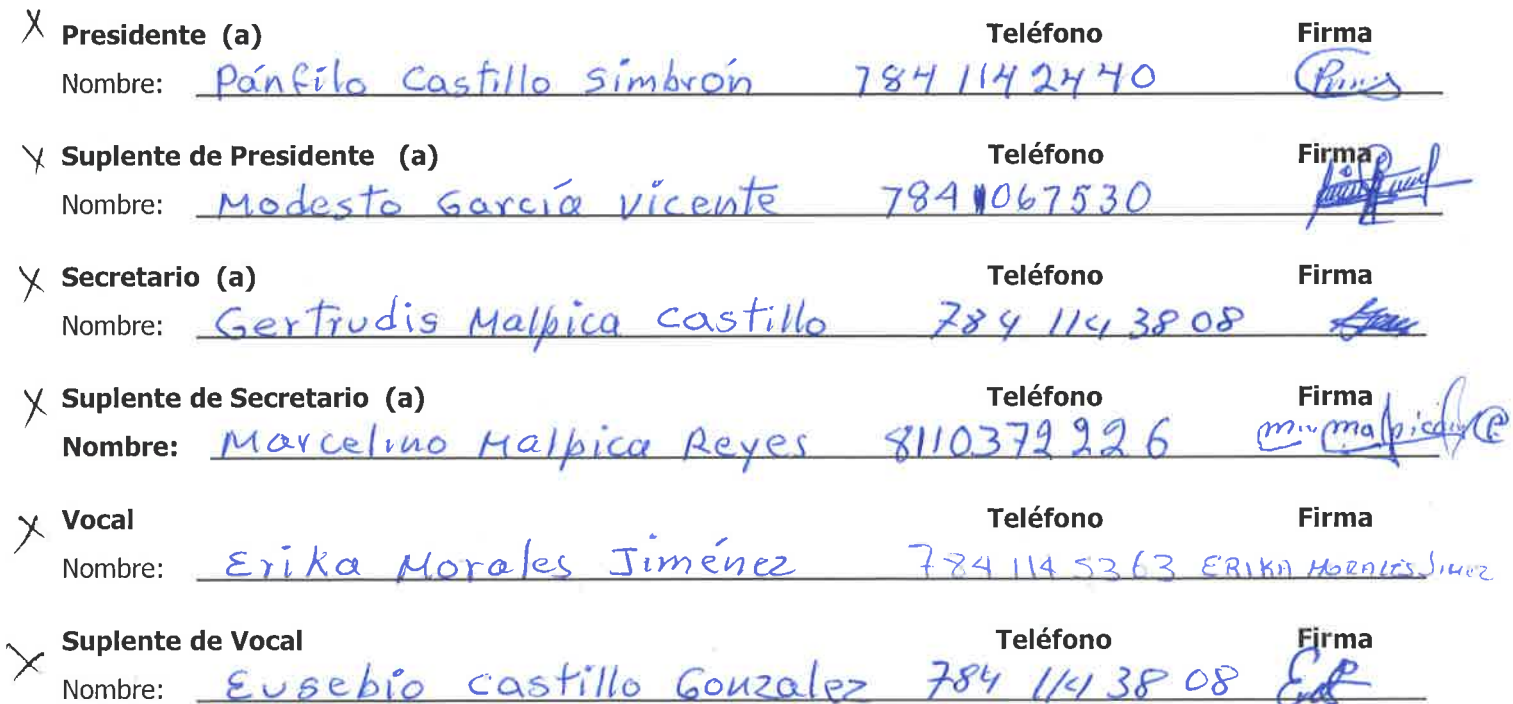 X Presidente (a) Teléfono Firma
Nombre: Pánfilo Castillo Simbrón 784 114 2440
X Suplente de Presidente (a) Teléfono Firma
Nombre: Modesto García Vicente 784 1067530
X Secretario (a) Teléfono Firma
Nombre: Gertrudis Malpica Castillo 784 114 38 08
X Suplente de Secretario (a) Teléfono Firma
Nombre: Marcelino Malpica Reyes 8110372226
X Vocal Teléfono Firma
Nombre: Erika Morales Jiménez 784 114 5363 ERIKA MORALES
X Suplente de Vocal Teléfono Firma
Nombre: Eusebio Castillo Gonzalez 784 114 38 08